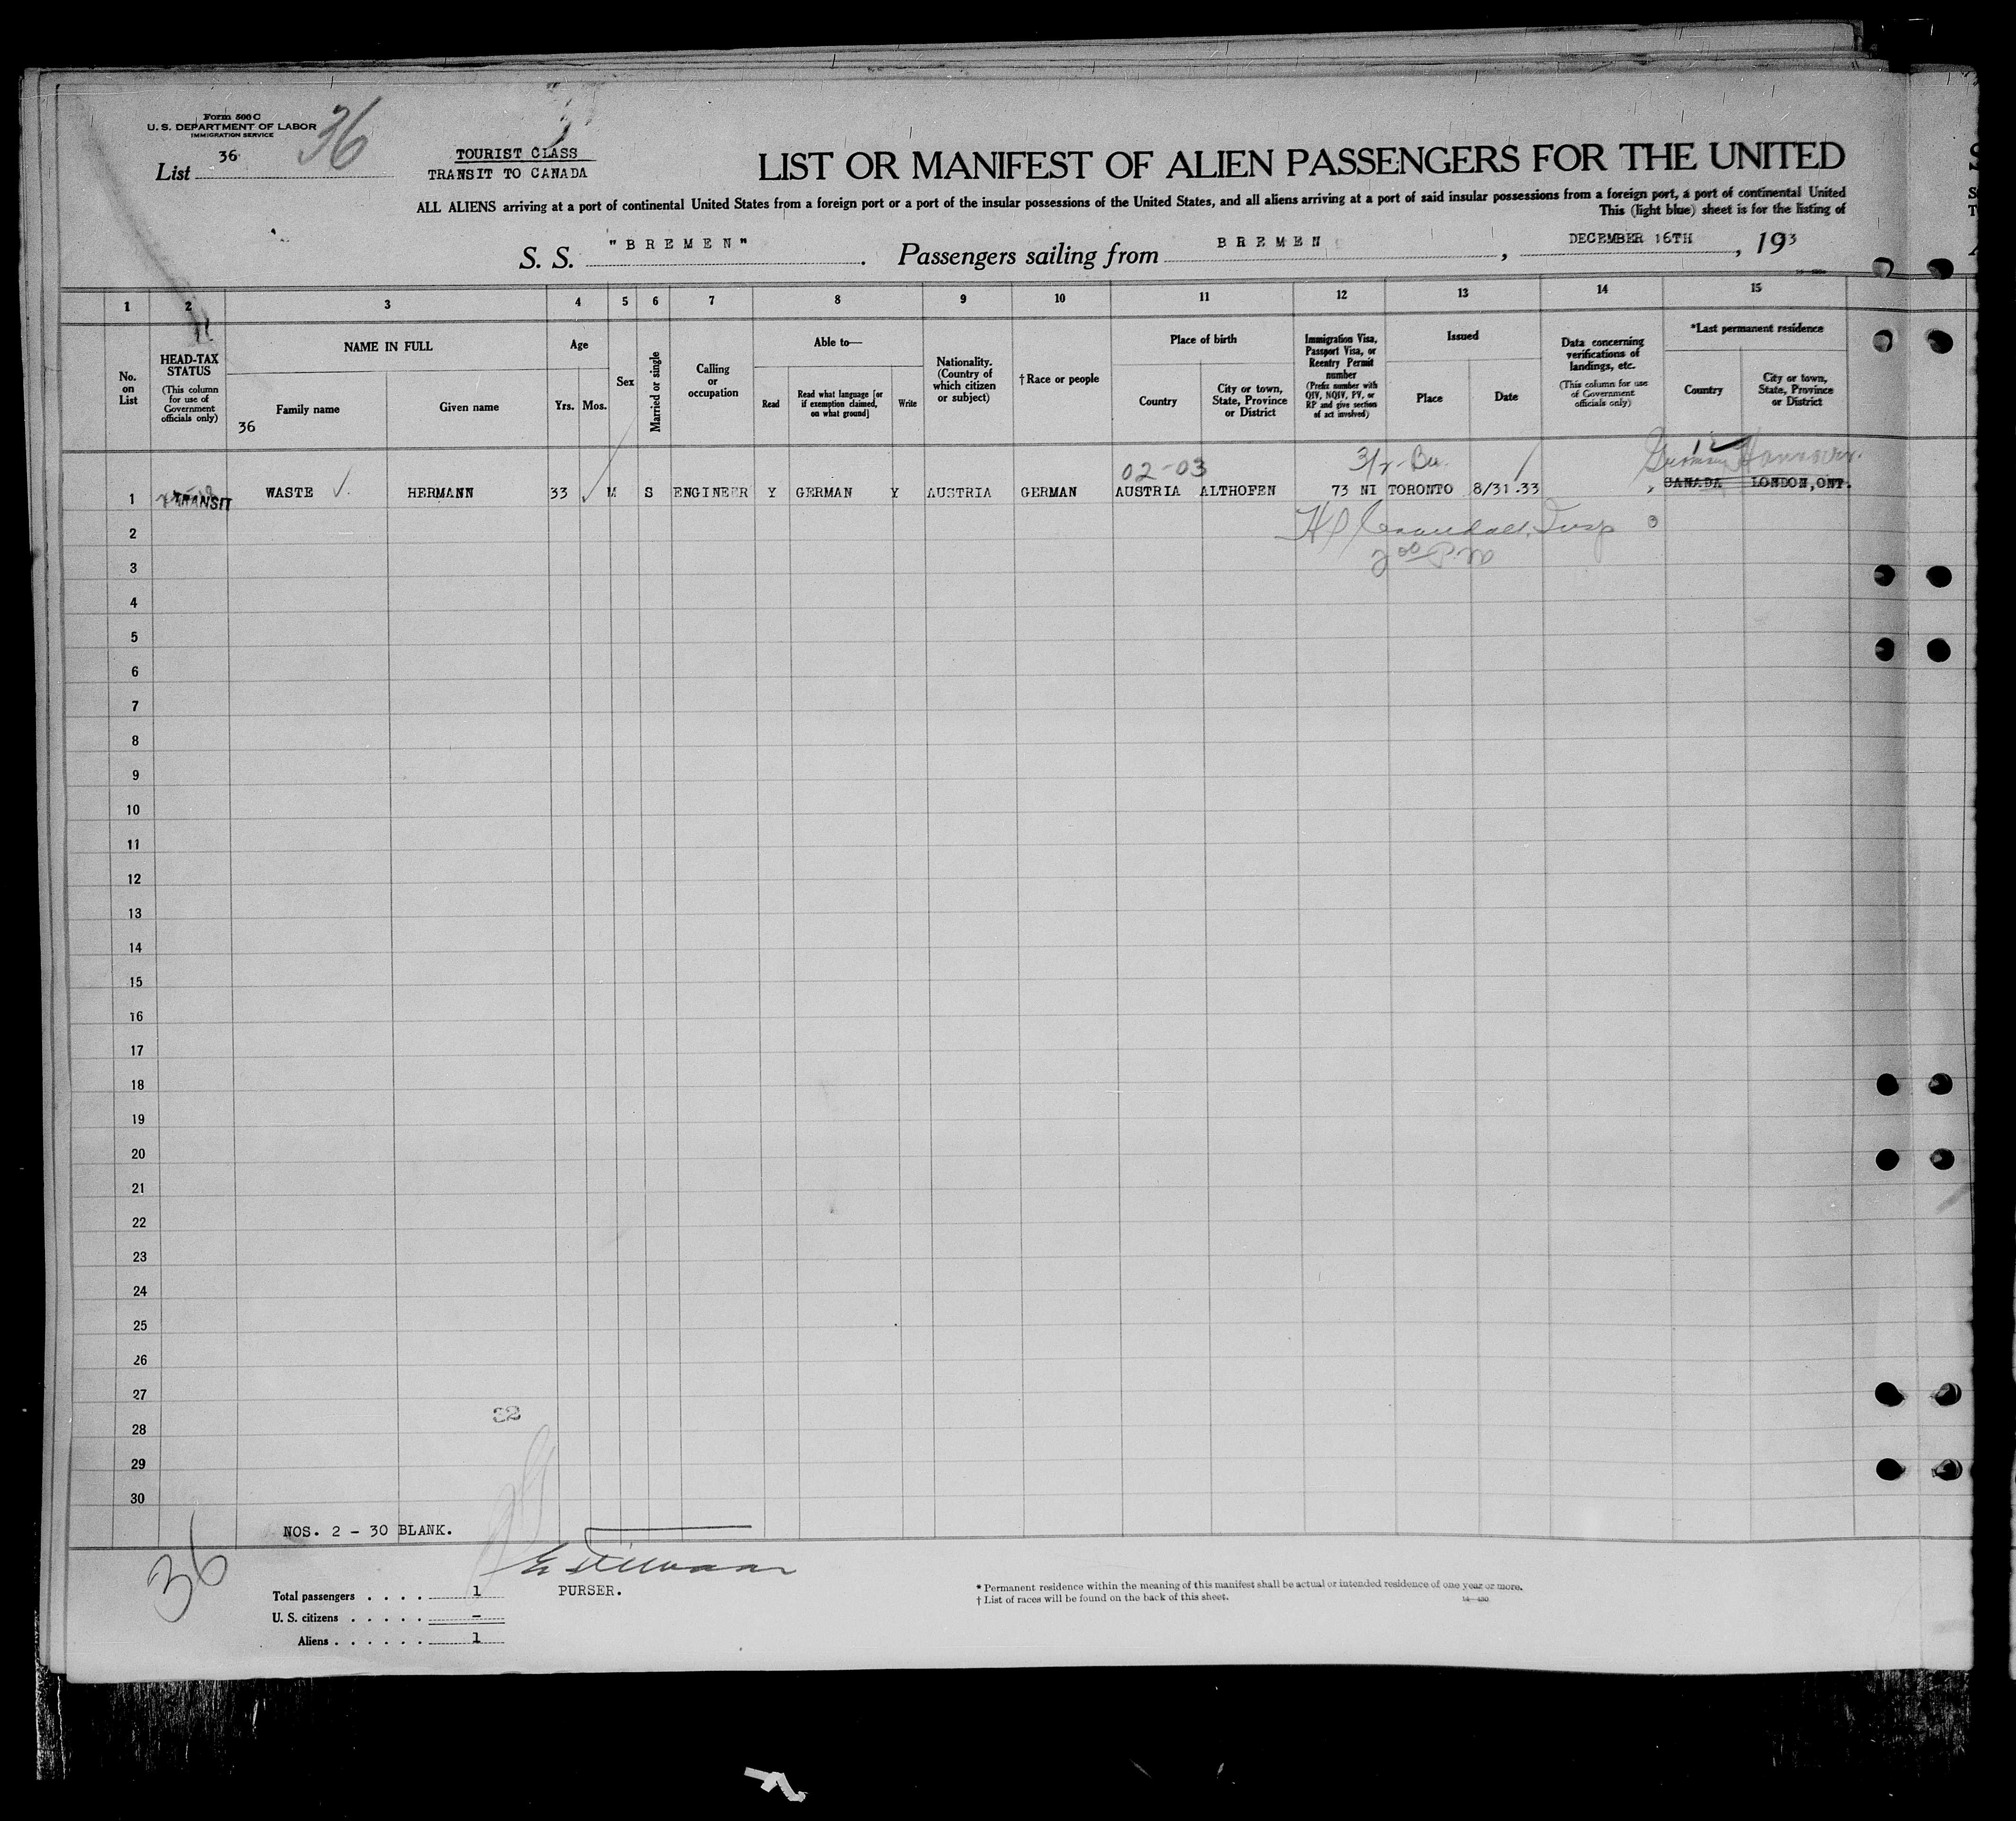 Form 500 C
U. S. DEPARTMENT OF LABOR
IMMIGRATION SERVICE
36
List 36
TOURIST CLASS
TRANSIT TO CANADA
LIST OR MANIFEST OF ALIEN PASSENGERS FOR THE UNITED
ALL ALIENS arriving at a port of continental United States from a foreign port or a port of the insular possessions of the United States, and all aliens arriving at a port of said insular possessions from a foreign port, a port of continental United
This (light blue) sheet is for the listing of
S. S. "BREMEN". Passengers sailing from BREMEN, DECEMBER 16TH, 193
1 2 3 4 5 6 7 8 9 10 11 12 13 14 15
No. on List
HEAD-TAX STATUS
(This column for use of Government officials only)
NAME IN FULL
Family name
Given name
36
Age
Yrs. Mos.
Sex
Married or single
Calling or occupation
Able to—
Read
Read what language [or if exemption claimed, on what ground]
Write
Nationality. (Country of which citizen or subject)
† Race or people
Place of birth
Country
City or town, State, Province or District
Immigration Visa, Passport Visa, or Reentry Permit number
(Prefix number with QIV, NQIV, PV, or RP and give section of act involved)
Issued
Place
Date
Data concerning verifications of landings, etc.
(This column for use of Government officials only)
*Last permanent residence
Country
City or town, State, Province or District
02-03
Germany Hannover.
1 TRANSIT WASTE HERMANN 33 M S ENGINEER Y GERMAN Y AUSTRIA GERMAN AUSTRIA ALTHOFEN 73 NI TORONTO 8/31.33 CANADA LONDON,ONT.
2
3
4
5
6
7
8
9
10
11
12
13
14
15
16
17
18
19
20
21
22
23
24
25
26
27
32
28
29
30
NOS. 2 - 30 BLANK.
36
PURSER.
Total passengers . . . . 1
U. S. citizens . . . . . –
Aliens . . . . . . 1
* Permanent residence within the meaning of this manifest shall be actual or intended residence of one year or more.
† List of races will be found on the back of this sheet.